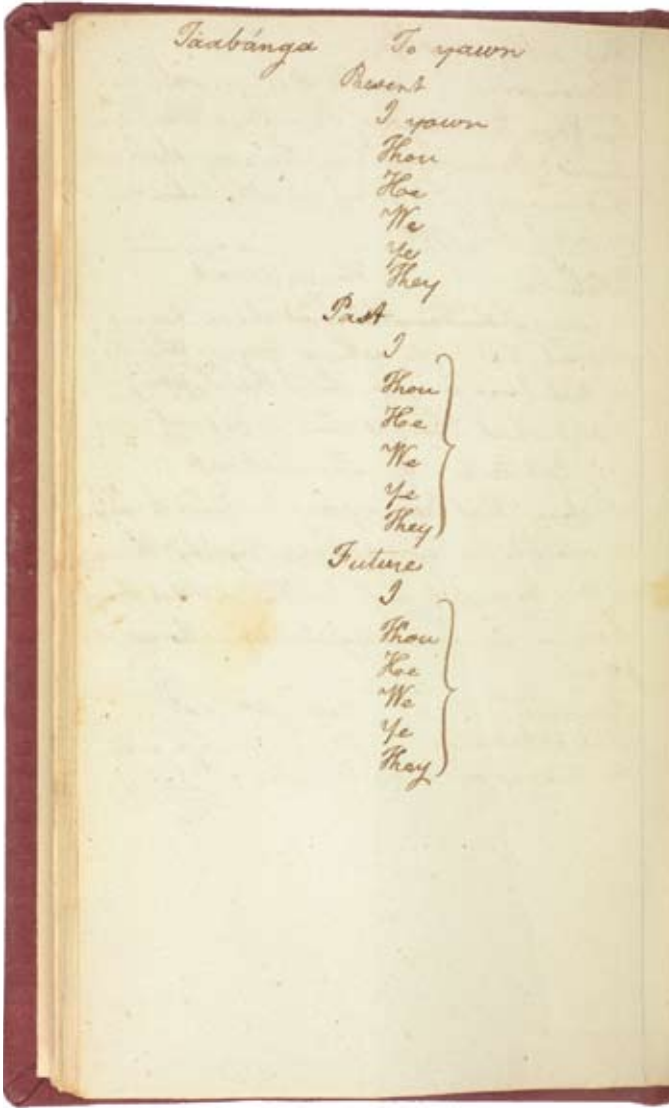 Taabánga To yawn
Present
I yawn
Thou
He
We
Ye
They
Past
I
Thou
He
We
Ye
They
Future
I
Thou
He
We
Ye
They